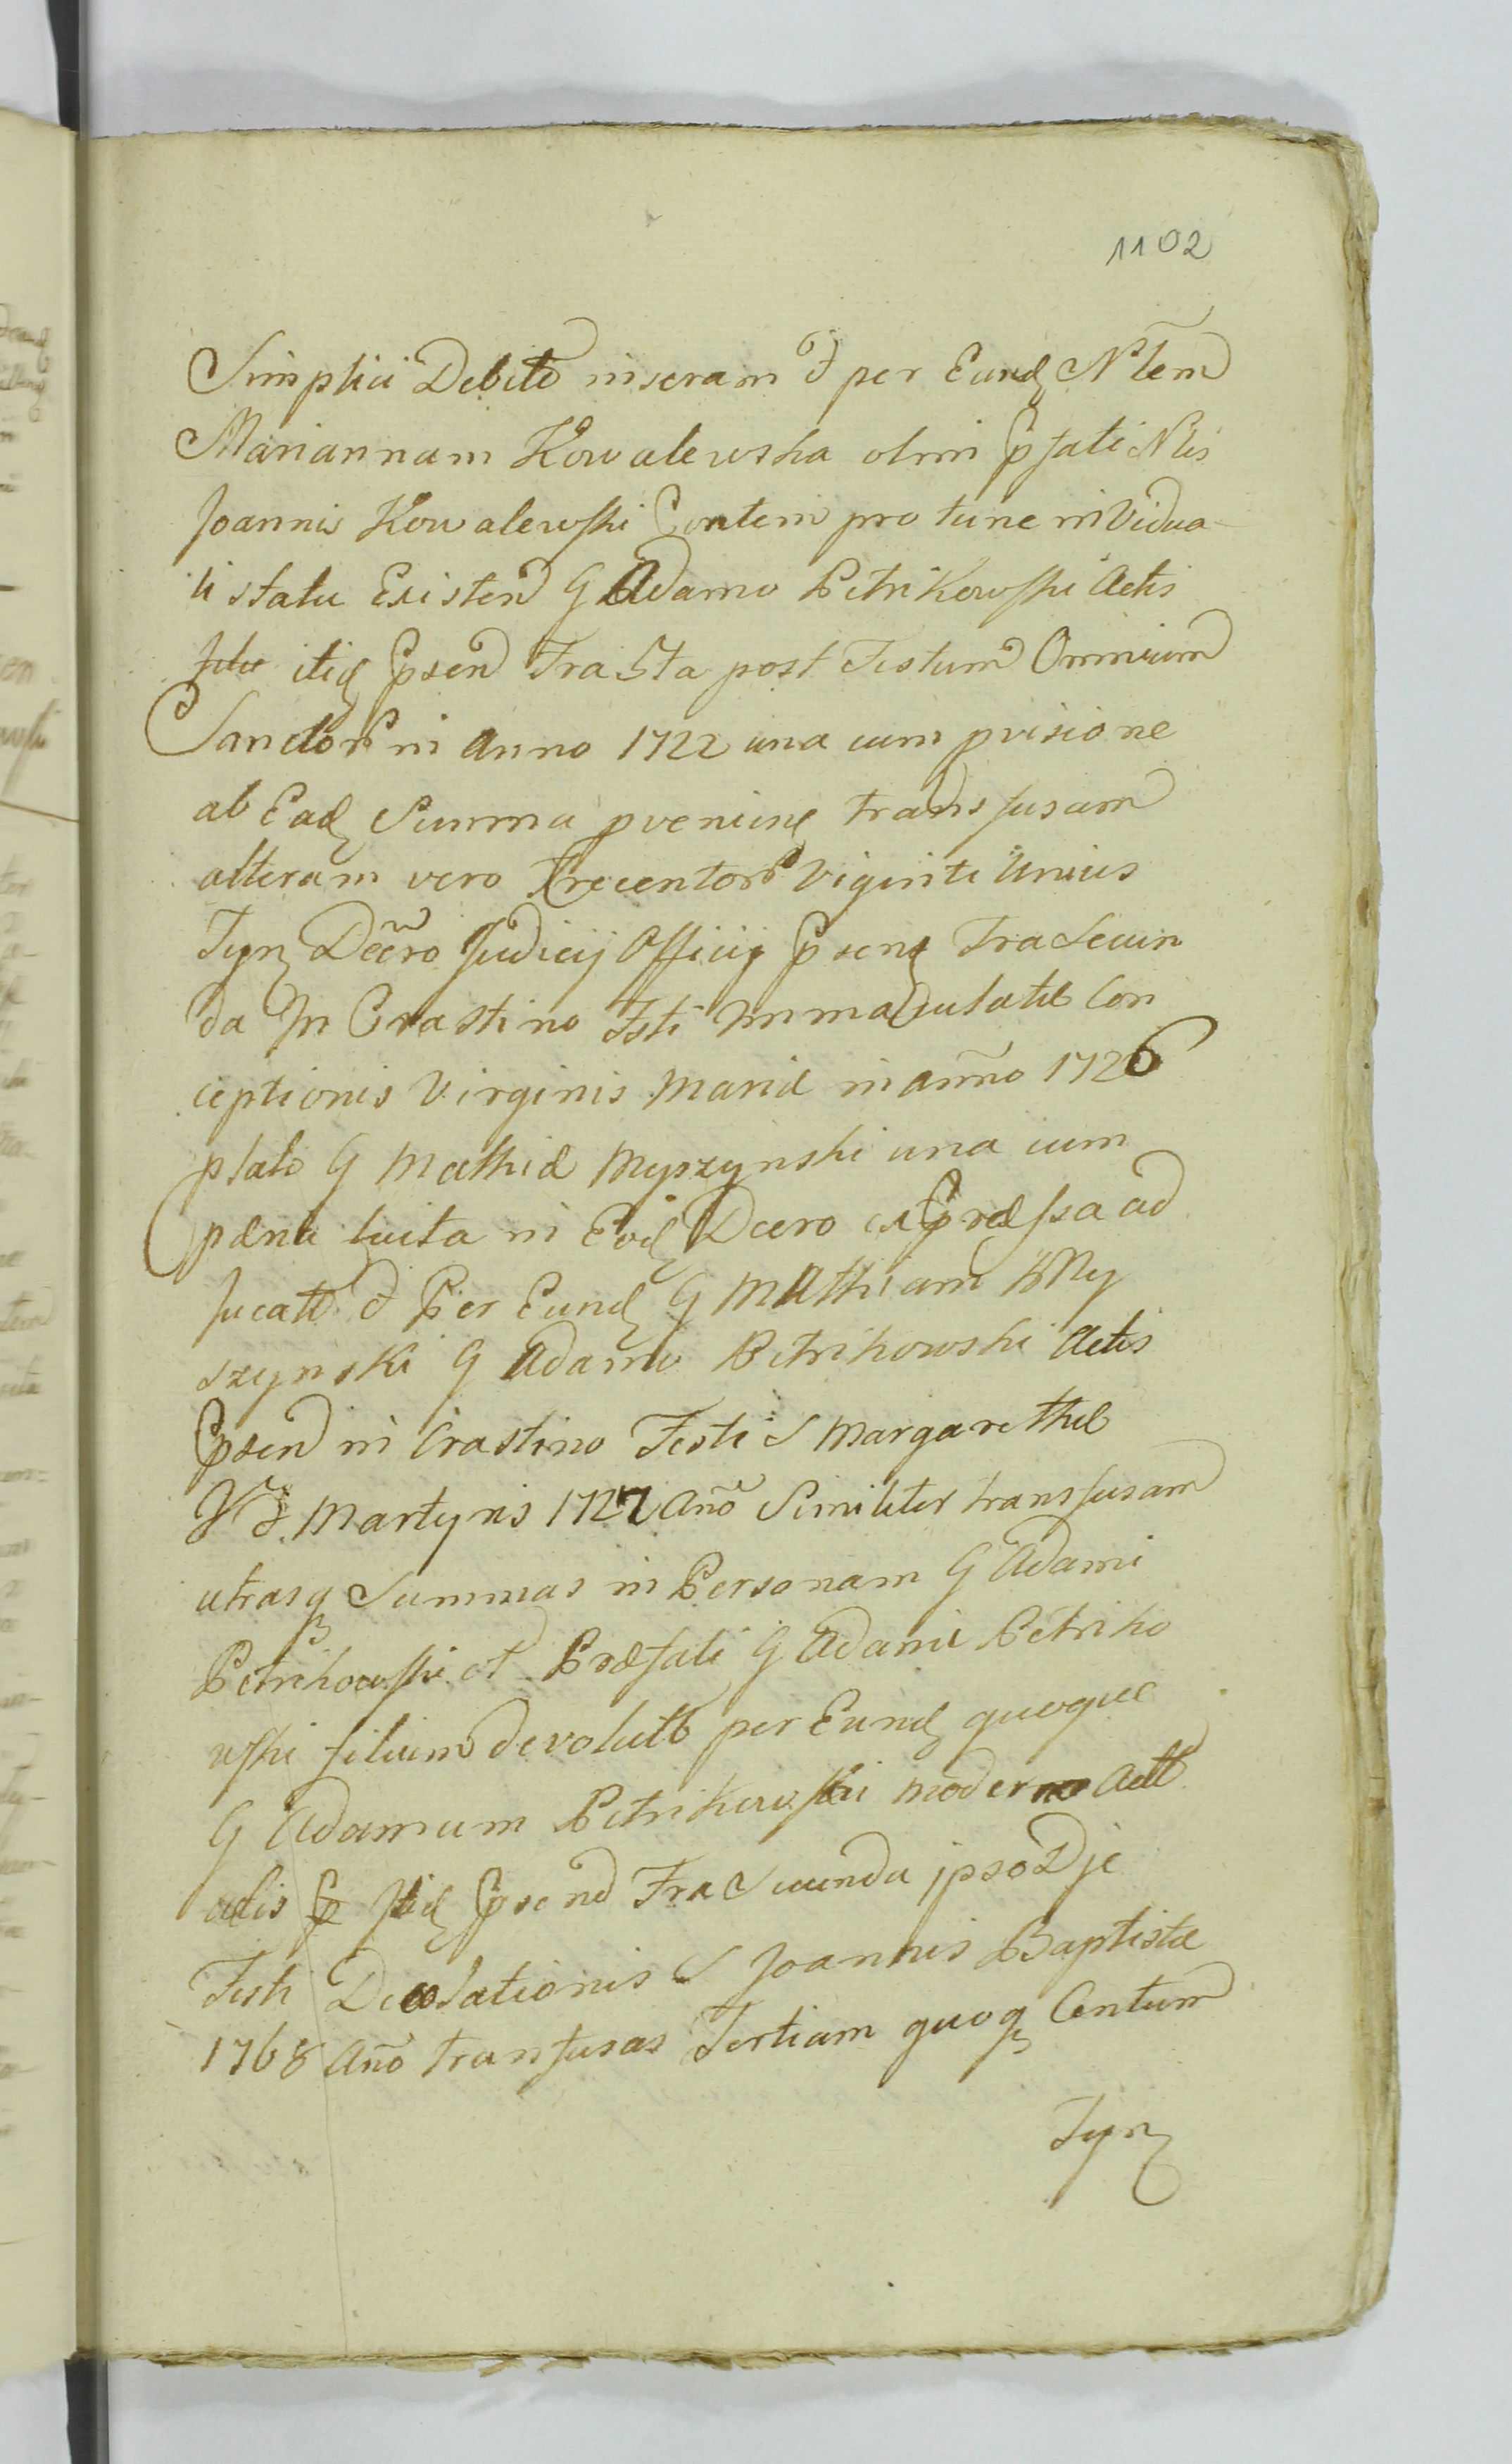 1102
Simplici Debito inseram & per Eund Nblem
Mariannam Kowalewska olim Pfati Nblis
Joannis Kowalewski Contem pro tunc in Vidua-
li statu Existen G Adamo Petrikowski Actis
itid Psen Fra 5ta post Festum Omnium
Sanctor in Anno 1722 una cum pvisione
ab Ead Summa pvenien transfusam
alteram vero Trecentor Viginti Unius
Tyn Decro Judicij Officij Psen Fra Secun
da In Crastino Fsti Immaculatae Con
ceptionis Virginis Mariæ in anno 1726
pfato G Mathiæ Myszynski una cum
pæna luita in Eod Dcero exPræssa ad
jucat & Per Eund G Mathiam My
szynski G Adamo Petrikowski Actis
Psen in Crastino Festi S Margarethæ
V & Martyris 1727 Año Similiter transfusam
utrasq Summas in Personam G Adami
Petrikowski ol Præfati G Adami Petriko
wski filium devolut per Eund quoque
G Adamum Petrikowski moderno Act
actis Itid Psend Fra Secunda ipso Die
Festi Decolationis S Joannis Baptistæ
1768 Año transfusas Tertiam quoq Centum
Tyn